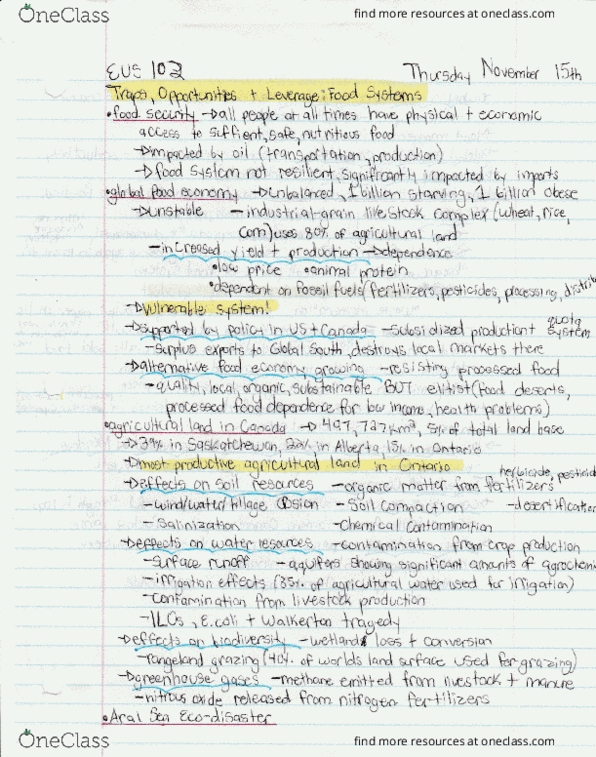 OneClass
find more resources at oneclass.com
EUS 102 Thursday November 15th
Traps, Opportunities + Leverage: Food Systems
•food security → all people at all times have physical + economic
access to suffient, safe, nutritious food
→impacted by oil (transportation, production)
→ food system not resilient, significantly impacted by imports
•global food economy →unbalanced, 1 billion starving, 1 billion obese
→unstable -industrial-grain livestock complex (wheat, rice,
corn) uses 80% of agricultural land
-increased yield + production → dependence
•low price •animal protein
•dependent on fossil fuels (fertilizers, pesticides, processing, distrib
→vulnerable system!
→supported by policy in US + Canada -subsidized production quota system
-surplus exports to Global South, destroys local markets there
→alternative food economy growing -resisting processed food
-quality, local, organic, sustainable BUT elitist (food deserts,
processed food dependence for low income, health problems)
•agricultural land in Canada → 497,727 km², 5% of total land base
→39% in Saskatchewan, 22% in Alberta, 13% in Ontario
→most productive agricultural land in Ontario herbicide, pesticid
→effects on soil resources -organic matter from fertilizers
-wind/water/tillage erosion -Soil compaction -desertification
-Salinization -chemical contamination
→effects on water resources -contamination from crop production
-surface runoff -aquifers showing significant amounts of agrochemi
-irrigation effects (85% of agricultural water used for irrigation)
-contamination from livestock production
-ILOs, E.coli + Walkerton tragedy
→effects on biodiversity -wetland loss + conversion
-rangeland grazing (40% of worlds land surface used for grazing)
→greenhouse gases -methane emitted from livestock + manure
-nitrous oxide released from nitrogen fertilizers
•Aral Sea Eco-disaster
OneClass
find more resources at oneclass.com